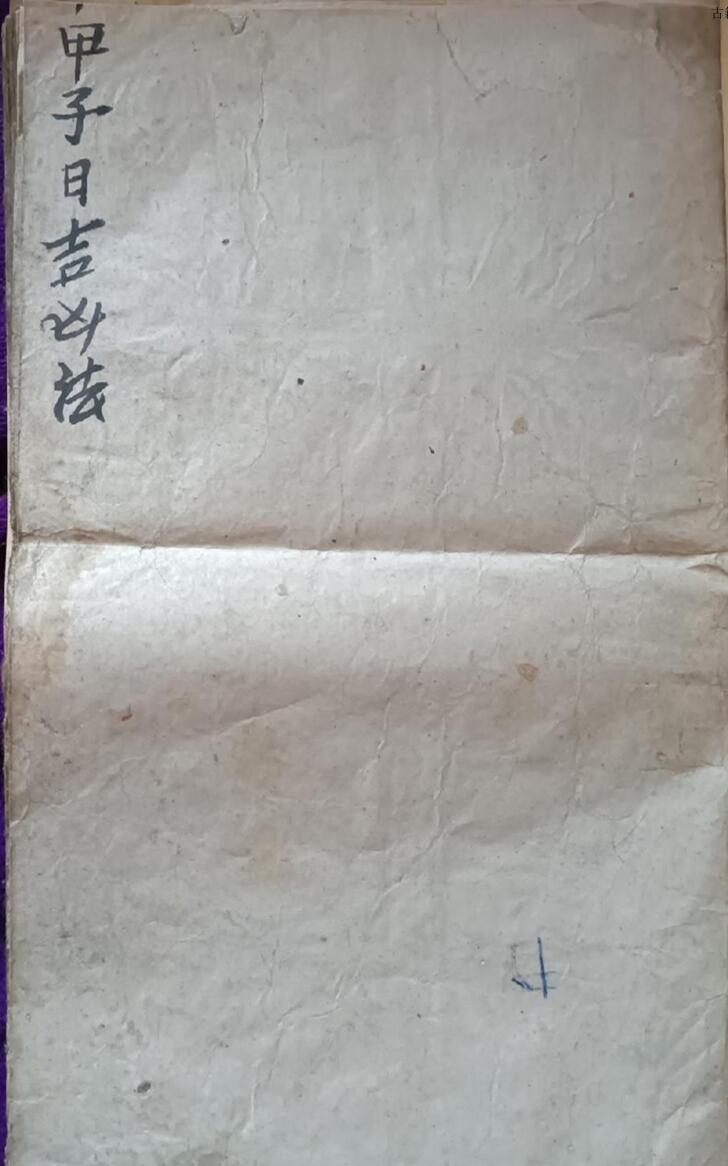 甲子日吉凶法